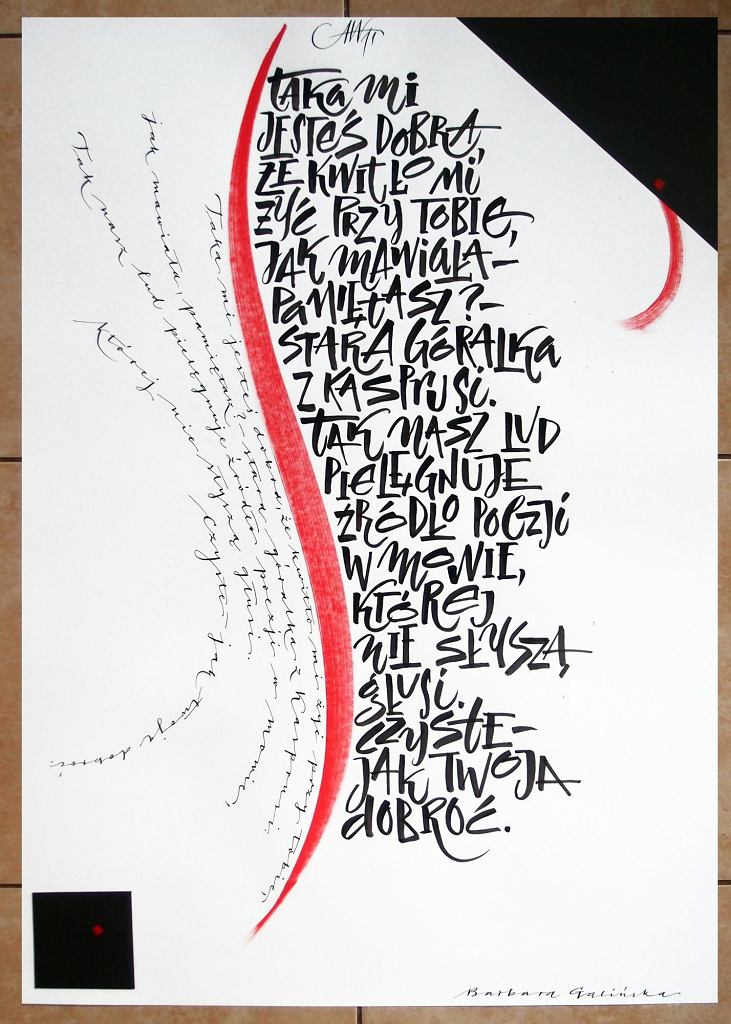 TAKA MI
JESTEŚ DOBRA,
ŻE KWITŁO MI
ŻYĆ PRZY TOBIE,
JAK MAWIAŁA–
PAMIĘTASZ?–
STARA GÓRALKA
Z KASPRUSI.
TAK NASZ LUD
PIELĘGNUJE
ŹRÓDŁO POEZJI
W MOWIE,
KTÓREJ
NIE SŁYSZĄ
GŁUSI.
CZYSTE–
JAK TWOJA
DOBROĆ.
Taka mi jesteś dobra, że kwitło mi żyć przy tobie,
jak mawiała, pamiętasz? – stara góralka z Kasprusi.
Tak nasz lud pielęgnuje źródło poezji w mowie,
której nie słyszą głusi.
czyste– jak twoja dobroć.
Barbara Galińska